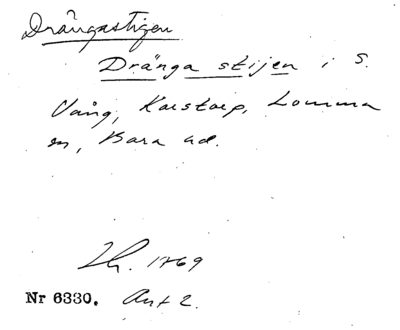 Drängastigen
Dränga stijen i S.
Vång, Karstorp, Lomma
sn, Bara hd.
Lh. 1769
Nr 6330. Ant 2.